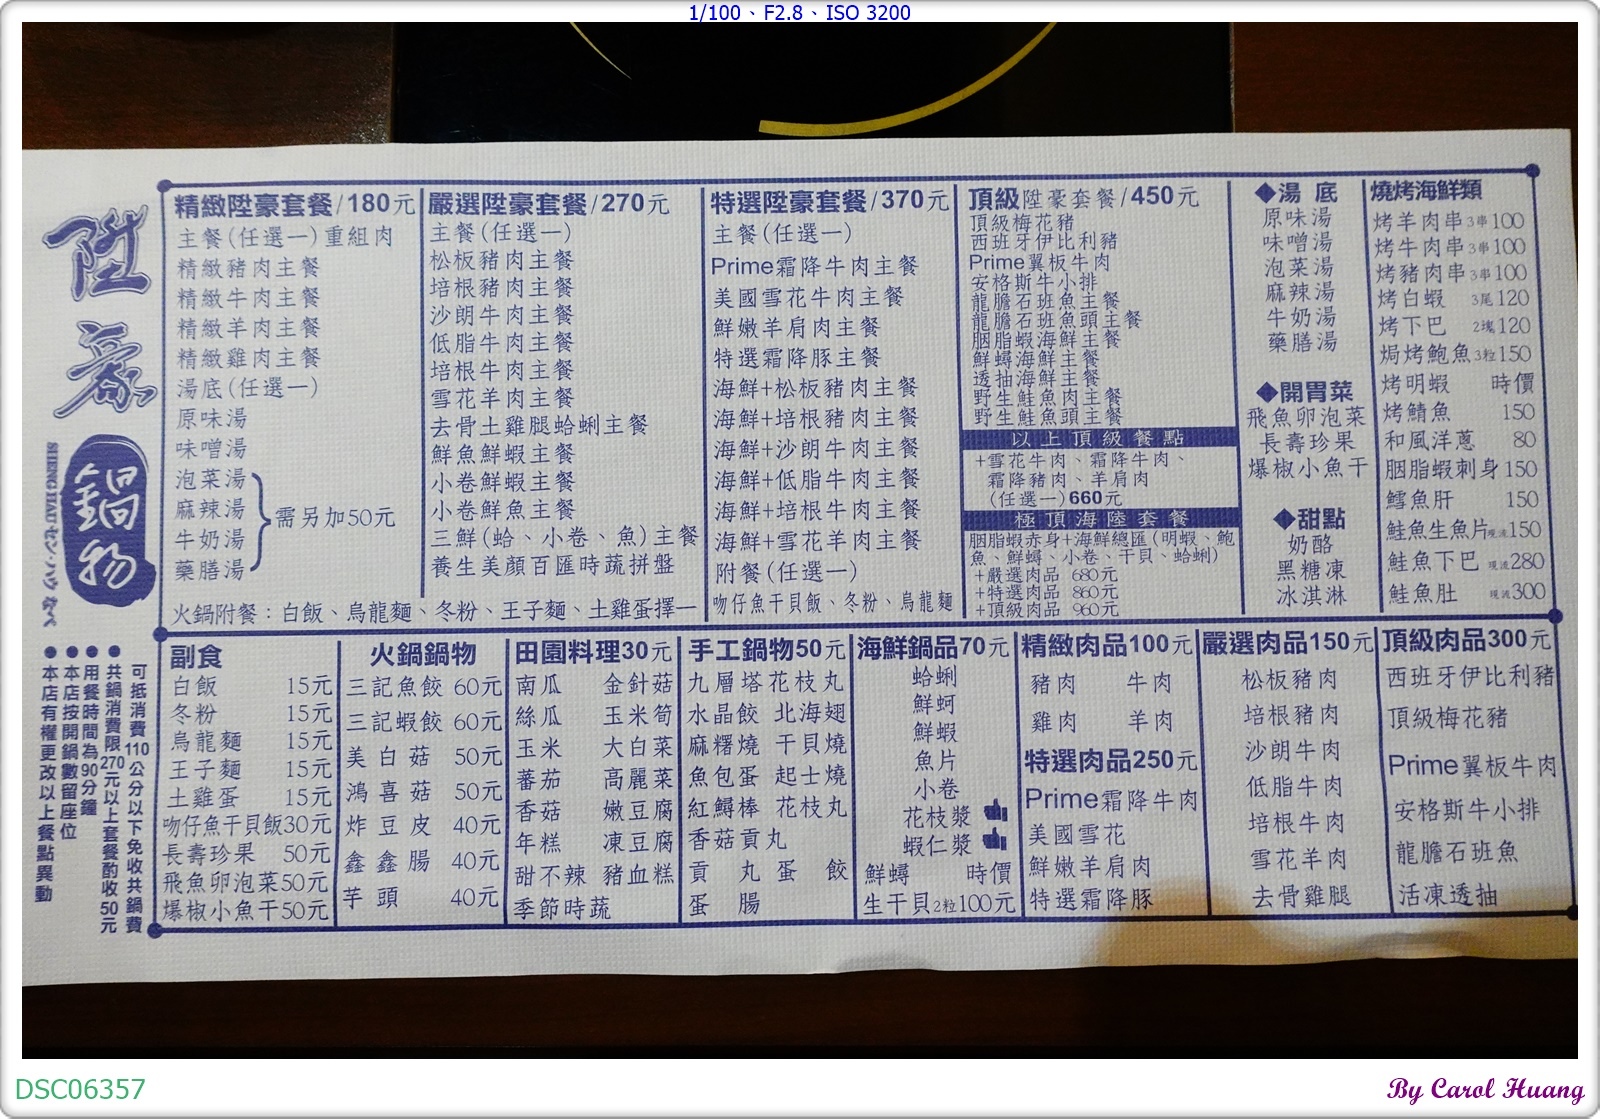 1/100、F2.8、ISO 3200
陞豪
鍋物
精緻陞豪套餐/180元
主餐(任選一)重組肉
精緻豬肉主餐
精緻牛肉主餐
精緻羊肉主餐
精緻雞肉主餐
湯底(任選一)
原味湯
味噌湯
泡菜湯
麻辣湯
牛奶湯
藥膳湯
需另加50元
火鍋附餐：白飯、烏龍麵、冬粉、王子麵、土雞蛋擇一
嚴選陞豪套餐/270元
主餐(任選一)
松板豬肉主餐
培根豬肉主餐
沙朗牛肉主餐
低脂牛肉主餐
培根牛肉主餐
雪花羊肉主餐
去骨土雞腿蛤蜊主餐
鮮魚鮮蝦主餐
小卷鮮蝦主餐
小卷鮮魚主餐
三鮮(蛤、小卷、魚)主餐
養生美顏百匯時蔬拼盤
特選陞豪套餐/370元
主餐(任選一)
Prime霜降牛肉主餐
美國雪花牛肉主餐
鮮嫩羊肩肉主餐
特選霜降豚主餐
海鮮+松板豬肉主餐
海鮮+培根豬肉主餐
海鮮+沙朗牛肉主餐
海鮮+低脂牛肉主餐
海鮮+培根牛肉主餐
海鮮+雪花羊肉主餐
附餐(任選一)
吻仔魚干貝飯、冬粉、烏龍麵
頂級陞豪套餐/450元
頂級梅花豬
西班牙伊比利豬
Prime翼板牛肉
安格斯牛小排
龍膽石班魚主餐
龍膽石班魚頭主餐
胭脂蝦海鮮主餐
鮮蟳海鮮主餐
透抽海鮮主餐
野生鮭魚肉主餐
野生鮭魚頭主餐
以上頂級餐點
+雪花牛肉、霜降牛肉、
霜降豬肉、羊肩肉
(任選一)660元
極頂海陸套餐
胭脂蝦赤身+海鮮總匯(明蝦、鮑
魚、鮮蟳、小卷、干貝、蛤蜊)
+嚴選肉品 680元
+特選肉品 860元
+頂級肉品 960元
◆湯底
原味湯
味噌湯
泡菜湯
麻辣湯
牛奶湯
藥膳湯
◆開胃菜
飛魚卵泡菜
長壽珍果
爆椒小魚干
◆甜點
奶酪
黑糖凍
冰淇淋
燒烤海鮮類
烤羊肉串3串100
烤牛肉串3串100
烤豬肉串3串100
烤白蝦 3尾120
烤下巴 2塊120
焗烤鮑魚3粒150
烤明蝦 時價
烤鯖魚 150
和風洋蔥 80
胭脂蝦刺身150
鱈魚肝 150
鮭魚生魚片現流150
鮭魚下巴 現流280
鮭魚肚 現流300
可抵消費110公分以下免收共鍋費
●共鍋消費限270元以上套餐酌收50元
●用餐時間為90分鐘
●本店按開鍋數留座位
●本店有權更改以上餐點異動
副食
白飯 15元
冬粉 15元
烏龍麵 15元
王子麵 15元
土雞蛋 15元
吻仔魚干貝飯30元
長壽珍果 50元
飛魚卵泡菜50元
爆椒小魚干50元
火鍋鍋物
三記魚餃 60元
三記蝦餃 60元
美白菇 50元
鴻喜菇 50元
炸豆皮 40元
鑫鑫腸 40元
芋頭 40元
田園料理30元
南瓜 金針菇
絲瓜 玉米筍
玉米 大白菜
蕃茄 高麗菜
香菇 嫩豆腐
年糕 凍豆腐
甜不辣 豬血糕
季節時蔬
手工鍋物50元
九層塔花枝丸
水晶餃 北海翅
麻糬燒 干貝燒
魚包蛋 起士燒
紅蟳棒 花枝丸
香菇貢丸
貢丸 蛋餃
蛋腸
海鮮鍋品70元
蛤蜊
鮮蚵
鮮蝦
魚片
小卷
花枝漿
蝦仁漿
鮮蟳 時價
生干貝2粒100元
精緻肉品100元
豬肉 牛肉
雞肉 羊肉
特選肉品250元
Prime霜降牛肉
美國雪花
鮮嫩羊肩肉
特選霜降豚
嚴選肉品150元
松板豬肉
培根豬肉
沙朗牛肉
低脂牛肉
培根牛肉
雪花羊肉
去骨雞腿
頂級肉品300元
西班牙伊比利豬
頂級梅花豬
Prime翼板牛肉
安格斯牛小排
龍膽石班魚
活凍透抽
DSC06357
By Carol Huang